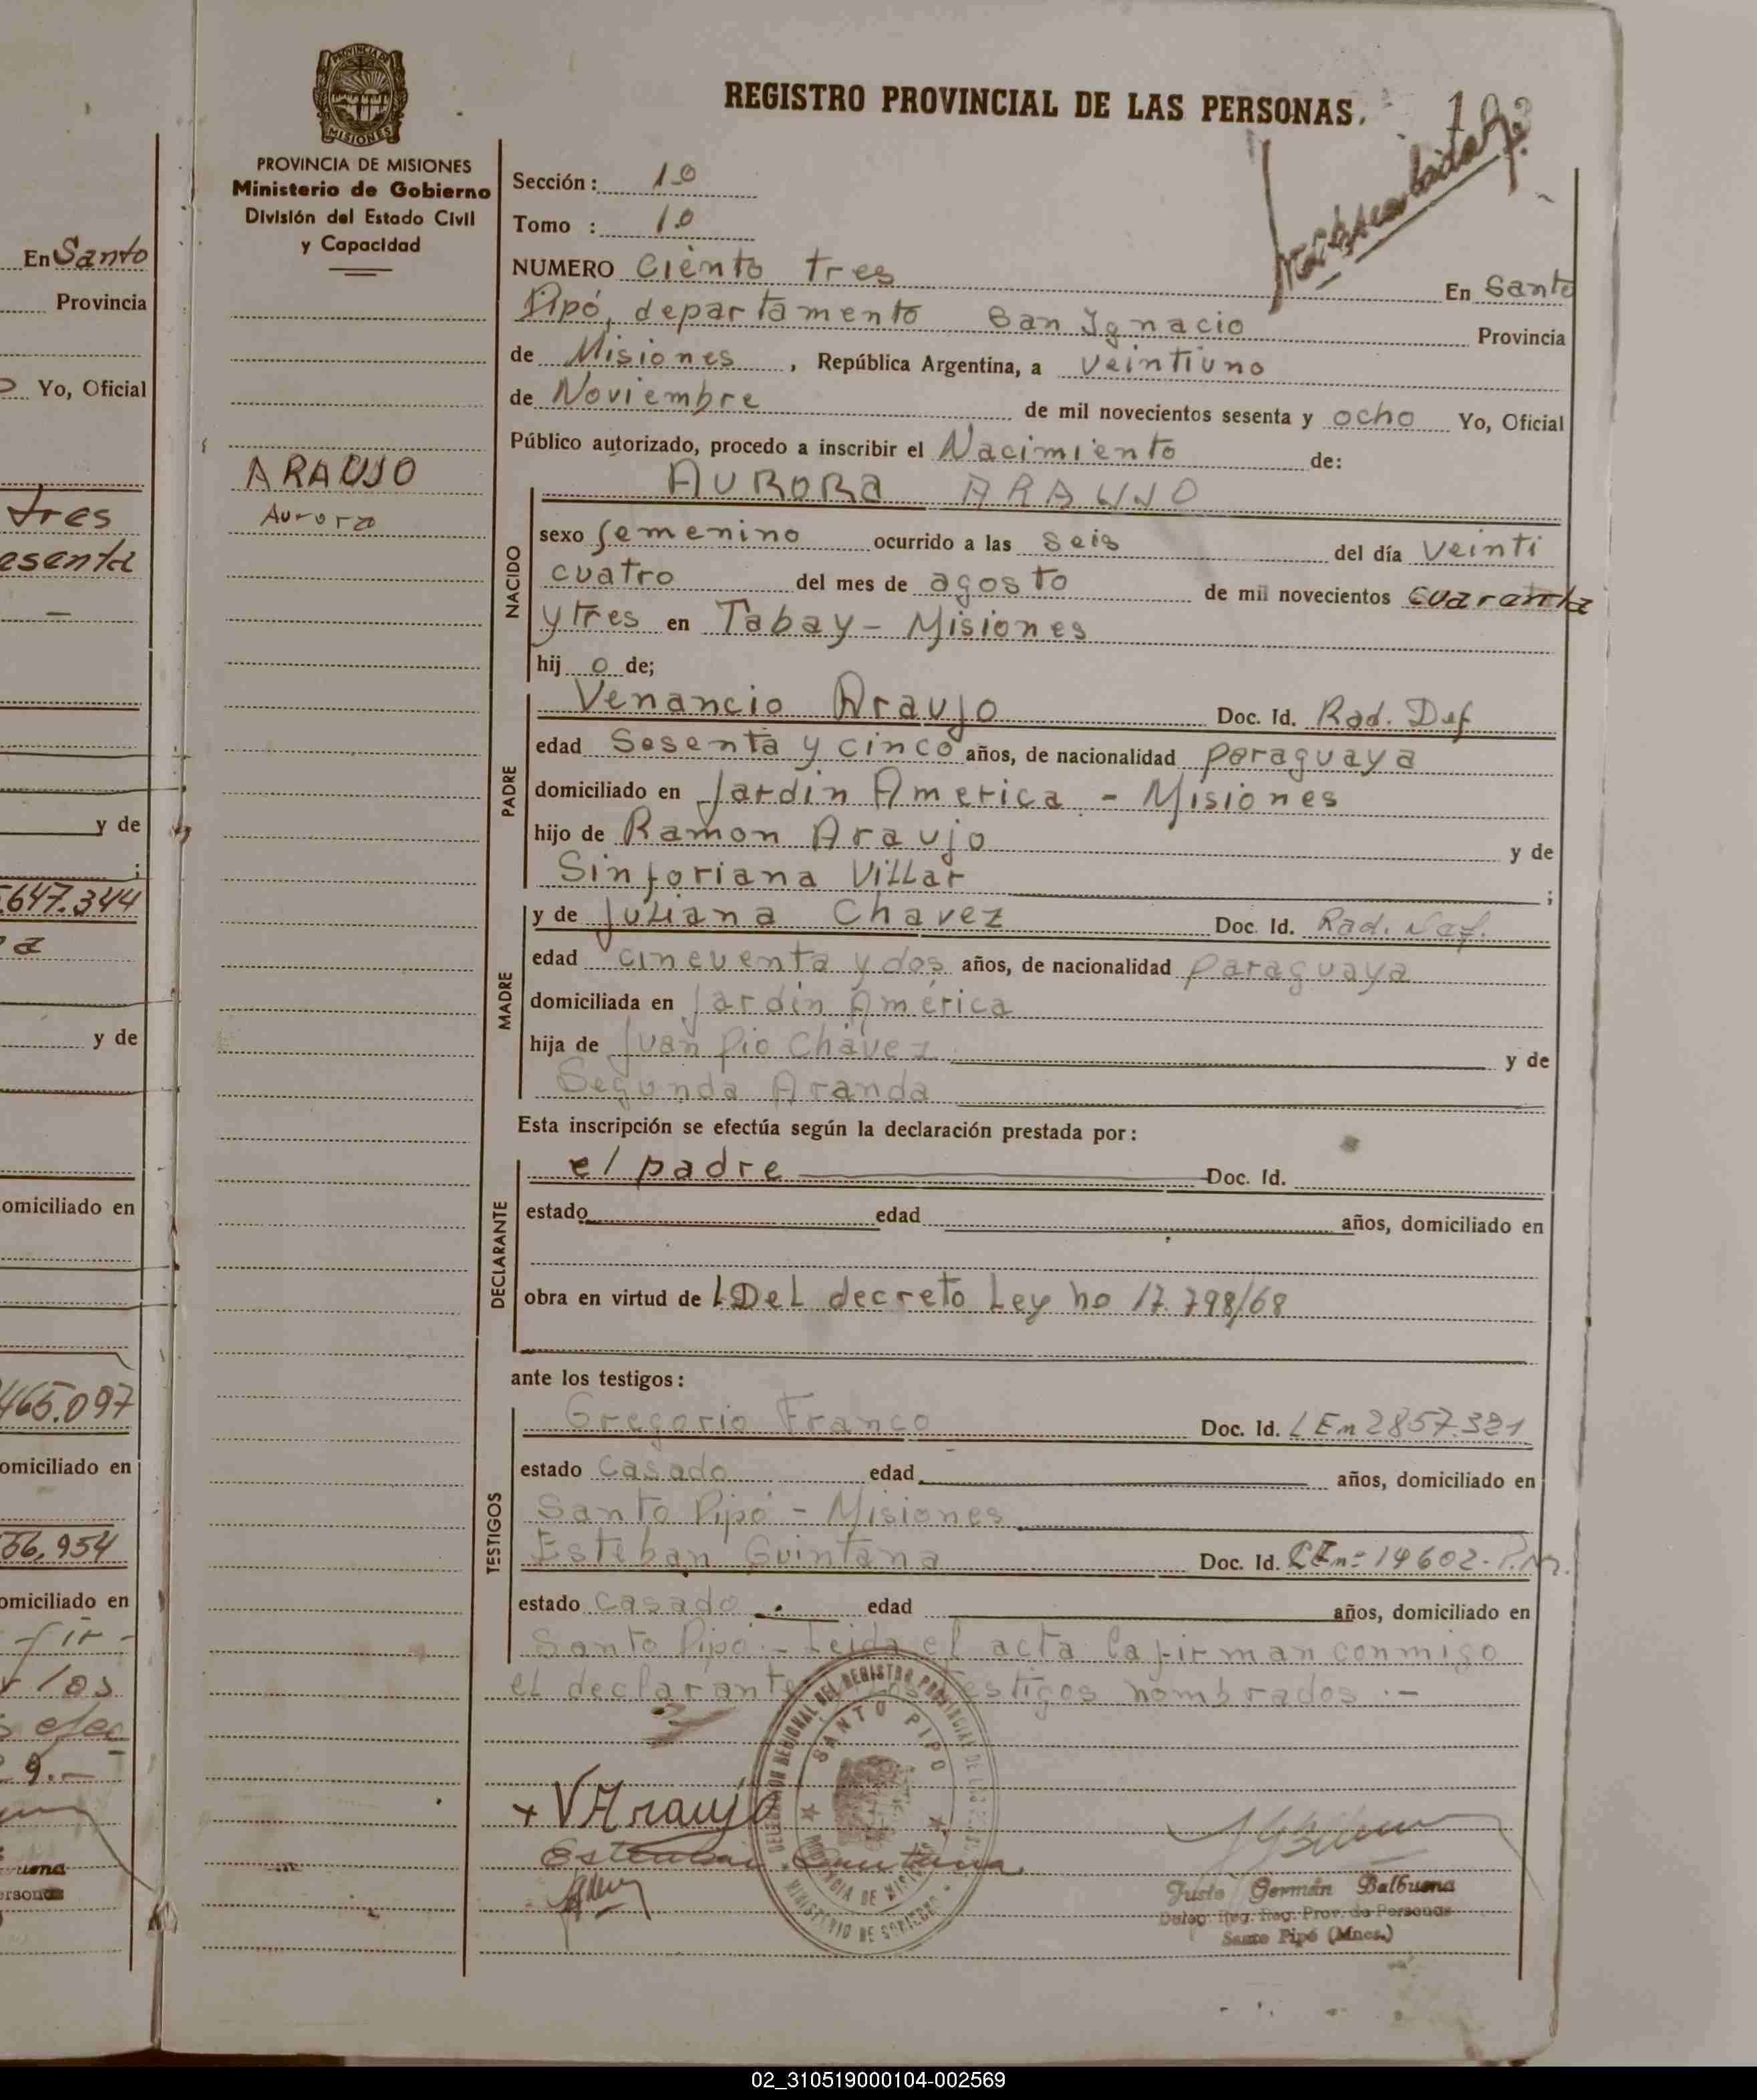 REGISTRO PROVINCIAL DE LAS PERSONAS.
MISIONES
PROVINCIA DE MISIONES
Ministerio de Gobierno
División del Estado Civil
y Capacidad
ARAUJO
Aurora
Sección: 1º
Tomo : 1º
NUMERO Ciento tres En Santo
Pipó, departamento San Ignacio Provincia
de Misiones, República Argentina, a veintiuno
de Noviembre de mil novecientos sesenta y ocho Yo, Oficial
Público autorizado, procedo a inscribir el Nacimiento de:
NACIDO
AURORA ARAUJO
sexo femenino ocurrido a las seis del día veinti
cuatro del mes de agosto de mil novecientos cuarenta
y tres en Tabay - Misiones
hij o de;
PADRE
Venancio Araujo Doc. Id. Rad. Def
edad Sesenta y cinco años, de nacionalidad paraguaya
domiciliado en Jardin America - Misiones
hijo de Ramon Araujo y de
Sinforiana Villar ;
MADRE
y de Juliana Chavez Doc. Id. Rad.
edad cincuenta y dos años, de nacionalidad paraguaya
domiciliada en Jardín América
hija de Juan Pio Chávez y de
Segunda Aranda
Esta inscripción se efectúa según la declaración prestada por:
DECLARANTE
el padre Doc. Id.
estado edad años, domiciliado en
obra en virtud de Del decreto Ley no 17.798/68
ante los testigos:
TESTIGOS
Gregorio Franco Doc. Id. LEn 2857.321
estado Casado edad años, domiciliado en
Santo Pipó - Misiones
Esteban Quintana Doc. Id. 14602
estado Casado edad años, domiciliado en
Santo Pipó - Leida el acta la firman conmigo
el declarante testigos nombrados .-
SANTO PIPO
PROVINCIA DE MISIONES
MINISTERIO DE GOBIERNO
+ VAraujo
Esteban Quintana
Justo Germán Balbuena
Deleg. Reg. Reg. Prov. de Personas
Santo Pipó (Mnes.)
En Santo
Provincia
Yo, Oficial
tres
esenta
y de
;
647.344
a
y de
omiciliado en
465.097
omiciliado en
56,954
omiciliado en
fir -
los
9.-
02_310519000104-002569